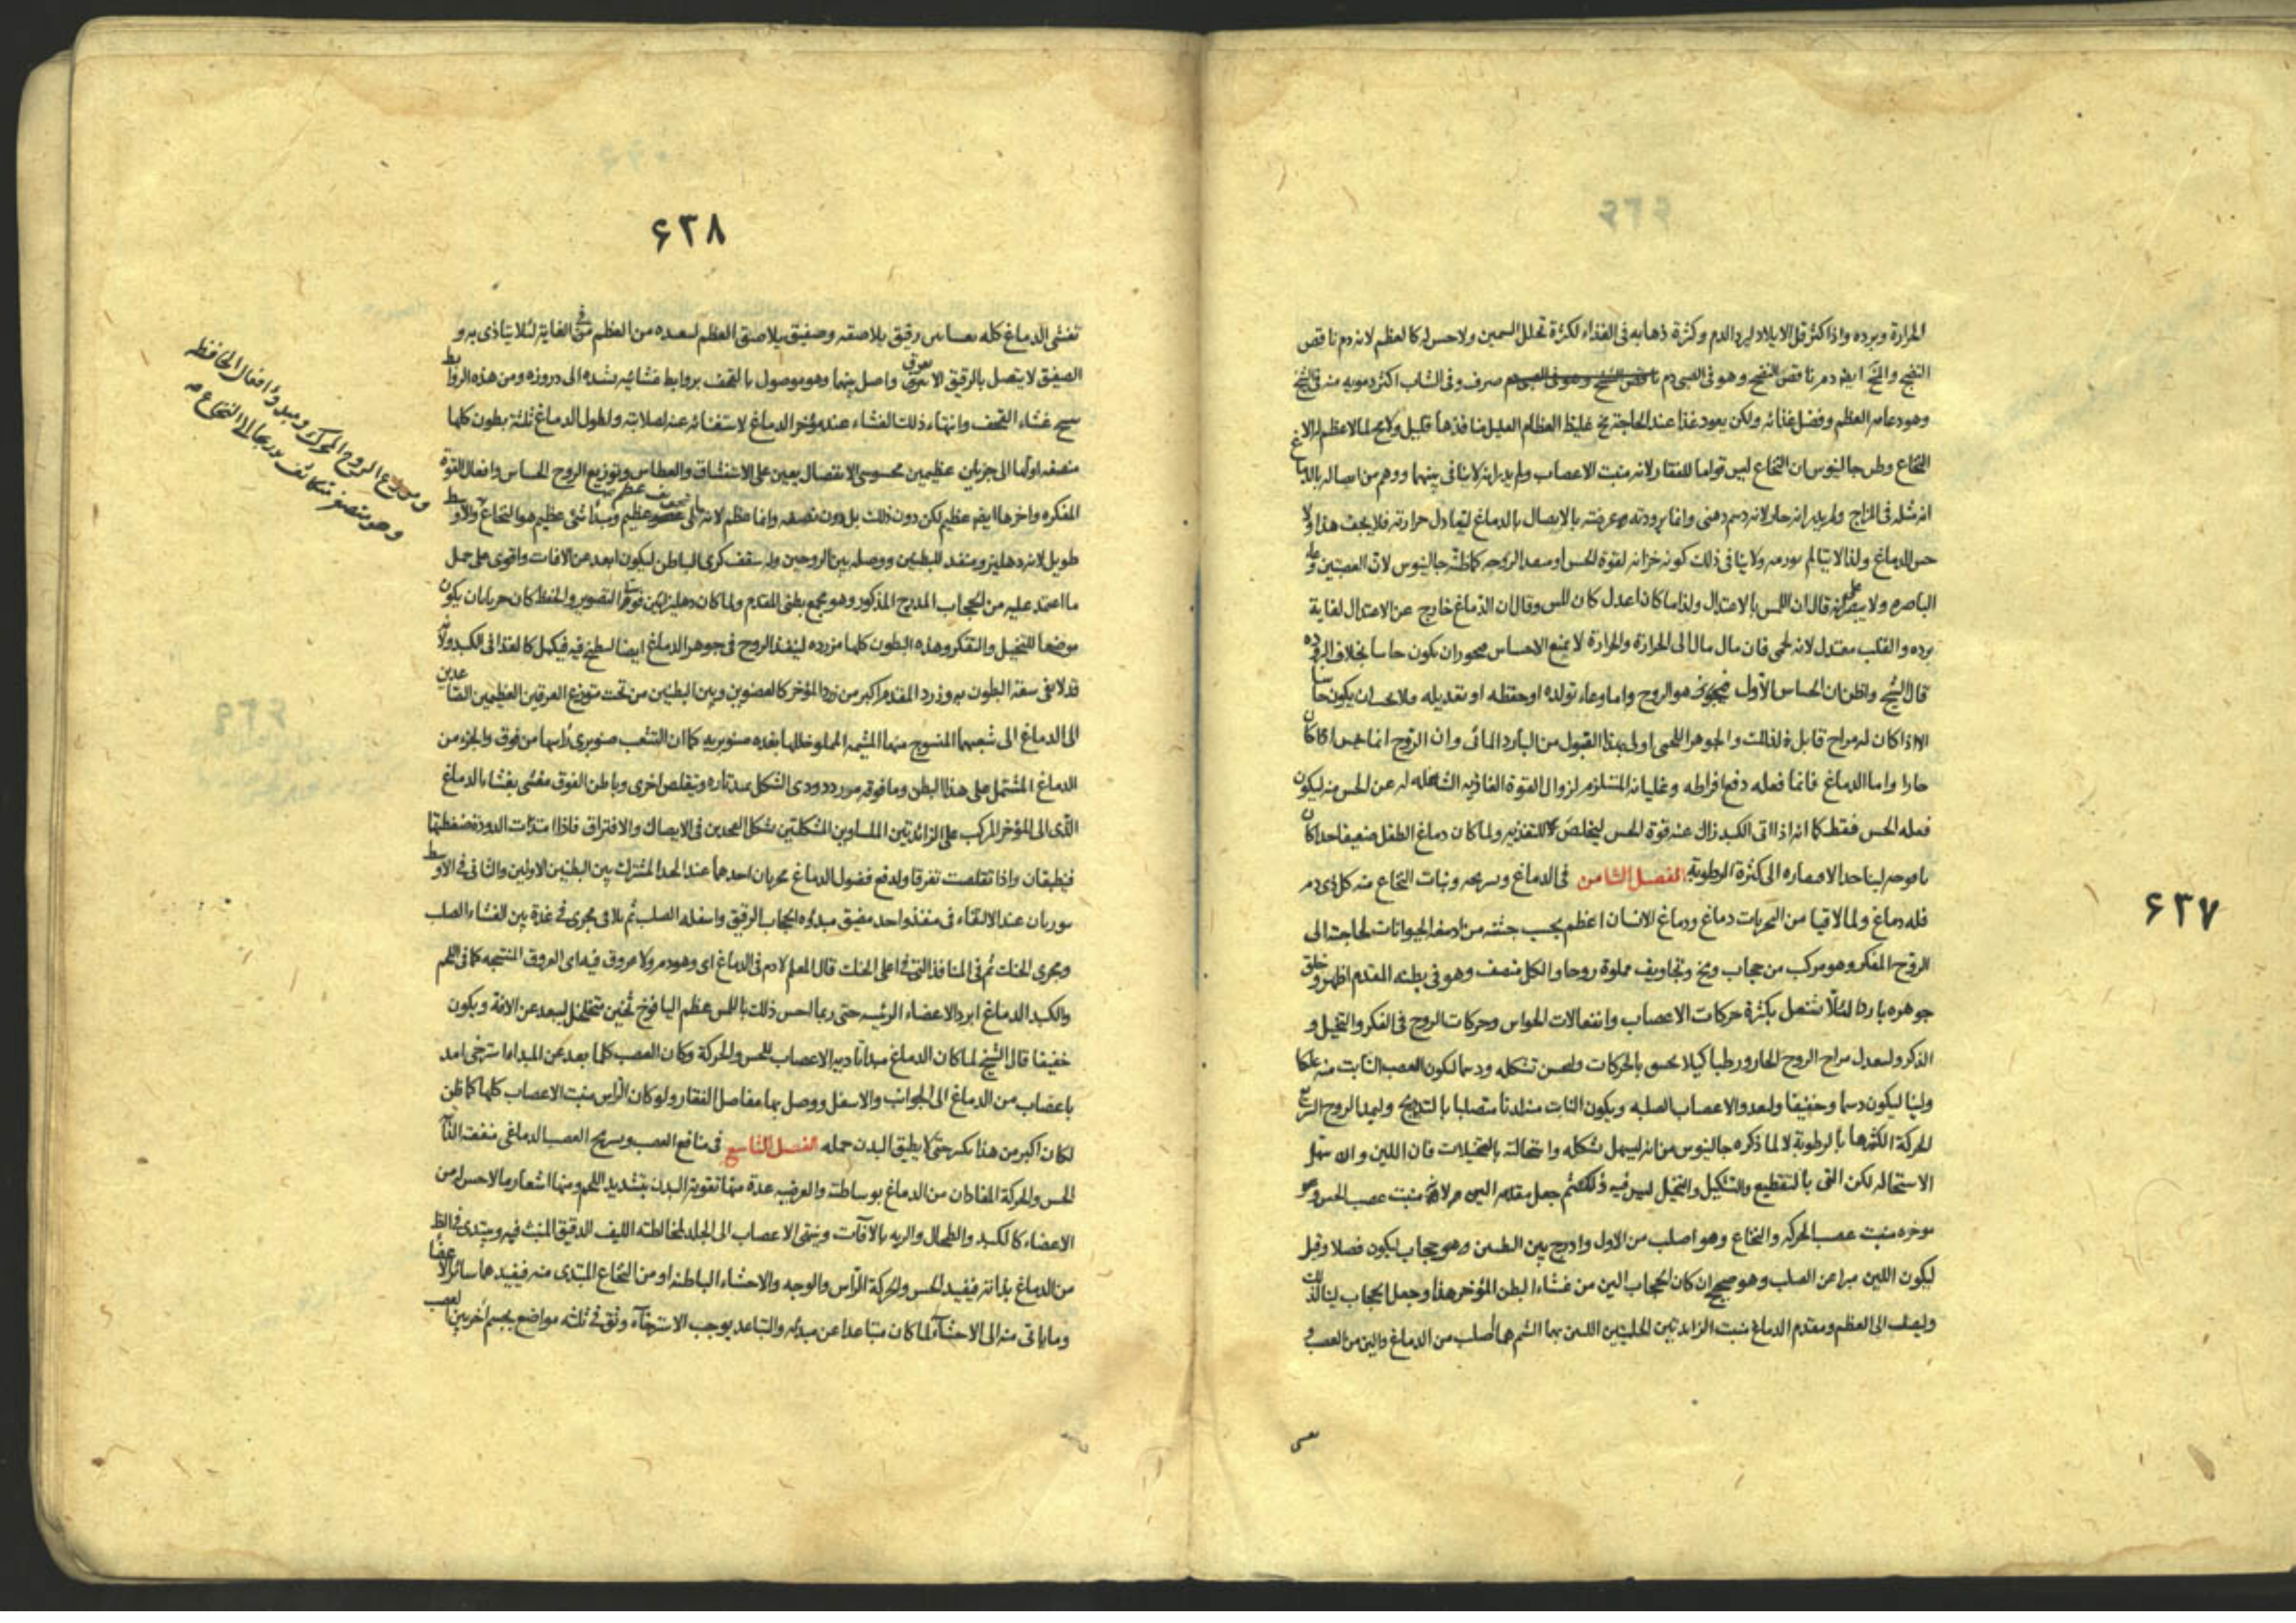 ۶۳۷
الحرارة وبرده واذا كثر قل الايلاد لبرد الدم وكثرة ذهابه فى الغذاء لكثرة تحلل السمين ولا حس له كالعظم لانه دم ناقص
النضج والمخ ايضا دم ناقص النضج وهو فى الصبى دم صرف وفى الشاب اكثر دموية منه فى الشيخ
وهو دعامة العظم وفضل غذائه ولكن يعود غذا عند الحاجة مخ غليظ العظام القليل منافذها قليل ولا مخ لما لا عظم له الا
النخاع وظن جالينوس ان النخاع ليس قواما للفقار لانه منبت الاعصاب ولم يدر انه لا ينافى بينهما ووهم من اتصاله بالدماغ
انه مثله فى المزاج ولم يدر انه حار لانه دسم دهنى وانما برودته عرضته بالاتصال بالدماغ ليعادل حرارته فلا يجف هذا ولا
حس للدماغ ولذا لا يتالم بورمه ولا ينافى ذلك كونه خزانة لقوة الحس او معدا لروحه كما ظنه جالينوس لان العصبتين
الباصرة ولا يبصر انه قال ان اللمس بالاعتدال ولذا ما كان اعدل كان للمس وقال ان الدماغ خارج عن الاعتدال لغاية
برده والقلب معتدل لانه لحمى فان مال مال الى الحرارة والحرارة لا يمنع الاحساس فيجوز ان يكون حاسا بخلاف البرودة
قال الشيخ واظن ان الحساس الاول هو الروح واما وعاء تولده او حفظه او تعديله فلا يجب ان يكون حاسا
الا اذا كان له مزاج قابل لذلك والجوهر اللحمى اولى بهذا القبول من البارد المائى وان الروح انما يحس اذا كان
حارا واما الدماغ فانما فعله دفع افراطه وغليانه المستلزم لزوال القوة الغاذية الشاغلة له عن الحس منه ليكون
فعله الحس فقط كما انه اذا اتى الكبد زال عنه قوة الحس ليخلص للتغذية ولما كان دماغ الطفل ضعيفا جدا كان
الى كثرة الرطوبة الفصل الثامن فى الدماغ وتشريحه ونبات النخاع منه كل ذى دم
فله دماغ ولمالاقيا من البحريات دماغ ودماغ الانسان اعظم بحسب جثته من ادمغة الحيوانات لحاجته الى
الروح المفكر وهو مركب من حجاب ومخ وتجاويف مملوة روحا والكل منصف وهو فى بطنه المقدم اظهر وخلق
جوهره باردا لئلا يشتعل بكثرة حركات الاعصاب وانفعالات الحواس وحركات الروح فى الفكر والتخيل و
الذكر وليعدل مزاج الروح الحار ورطبا كيلا يجف بالحركات وليحسن تشكله ودسما ليكون العصب النابت منه علكا
ولينا ليكون دسما وخفيفا وليغذو الاعصاب الصلبة ويكون النابت منه لدنا متصلبا بالتدريج وليمد الروح السريع
الحركة اكثرها بالرطوبة لا لما ذكره جالينوس من انه ليسهل تشكله واستحالته بالتخيلات فان اللين وان سهل
الاستحالة لكن التى بالتقطيع والتشكيل والتخيل ليس فيه ذلك ثم جعل مقدمه الين منبت عصب الحس و
موخره منبت عصب الحركة والنخاع وهو اصلب من الاول وادرج بين البطنين وهو حجاب ليكون فصلا وقيل
ليكون اللين مبرا عن الصلب وهو صحيح ان كان الحجاب الين من غشاء البطن المؤخر هذا وجعل الحجاب لينا لذلك
وليصلب الى العظم ومقدم الدماغ منبت الزايدتين الحلميتين اللتين بهما الشم هما اصلب من الدماغ والين من العصب و
۶۳۸
تغشى الدماغ كله بغشائين رقيق يلاصقه وصفيق يلاصق العظم لبعده من العظم فى الغاية لئلا يتاذى به و
الصفيق لا يتصل بالرقيق الا بعروق واصل بينهما وهو موصول بالقحف بروابط غشائية تشده الى دروزه ومن هذه الروابط
نسج غشاء القحف وانتهاء ذلك الغشاء عند مؤخر الدماغ لاستغنائه عنه لصلابته ولطول الدماغ ثلثة بطون كلها
منصفة اولها الى جزئين عظيمين محسوسى الانفصال يعين على الاستنشاق والعطاس وتوزيع الروح الحساس وافعال القوة
المفكرة واخرها ايضا عظيم لكن دون ذلك بل دون نصفه وانما عظم لانه يملى تجويف عظيم ومبدأ شئ عظيم هو النخاع والاوسط
طويل لانه دهليز ومنفذ للبطنين ووصلة بين الروحين وله سقف كرى الباطن ليكون ابعد عن الافات واقوى على حمل
ما اعتمد عليه من الحجاب المدرج المذكور وهو مجمع بطنى المقدم ولما كان دهليزا بين قوتى التصوير والحفظ كان حريا بان يكون
موضعا للتخيل والتفكر وهذه البطون كلها مزردة لينفذ الروح فى جوهر الدماغ ايضا لينطبخ فيه فيكمل كالغذا فى الكبد ولانه
قد لا يفى سعة البطون به وزرد المقدم اكبر من زرد المؤخر كالعضوين وبين البطنين من تحت متوزع العرقين العظيمين الصاعدين
الى الدماغ الى شعبهما المنسوج منها المشيمة المملو خللها بغدة صنوبرية كما ان التشعب صنوبرى راسها من فوق والجزء من
الدماغ المشتمل على هذا البطن وما فوقه مورد دودى الشكل يمتد تارة ويتقلص اخرى وباطن الفوق مغشى بغشاء الدماغ
الذى الى المؤخر المركب على الزائدتين الملساوين المشكلتين بشكل الفخذين فى الاتصال والافتراق فاذا امتدت الدودة ضغطتها
فينطبقان واذا تقلصت تفرقا ولدفع فضول الدماغ مجريان احدهما عند الحد المشترك بين البطنين الاولين والثانى فى الاوسط
عند الالتقاء فى منفذ واحد مضيق مبدؤه الحجاب الرقيق واسفله الصلب ثم يلاقى مجرى فى غدة بين الغشاء الصلب
ومجرى الحنك ثم فى المنافذ التى فى اعلى الحنك قال المعلم لا دم فى الدماغ اى وهو دم ولا عروق فيه اى العروق المنتسجة كما فى اللحم
والكبد الدماغ ابرد الاعضاء الرئيسة حتى ربما احس ذلك باللمس عظم اليافوخ ثخين متخلخل ليبعد عن الافة ويكون
خفيفا قال الشيخ لما كان الدماغ مبدأ تادية الاعصاب للحس والحركة وكان العصب كلما بعد عن المبدا استرخى امد
باعصاب من الدماغ الى الجوانب والاسفل ووصل بها مفاصل الفقار ولو كان الراس منبت الاعصاب كلها كما ظن
لكان اكبر من هذا بكثير حتى لا يطيق البدن حمله الفصل التاسع فى منافع العصب وتشريح العصب الدماغى منفعته الذا
الحس والحركة المفادان من الدماغ بوساطته والعرضية عدة منها تقوية البدن بتشديد اللحم ومنها اشعار ما لا حس له من
الاعضاء كالكبد والطحال والرية بالآفات وينتهى الاعصاب الى الجلد لمخالطته الليف الدقيق المنبث فيه ويبتدى فى الظ
من الدماغ بذاته فيفيد الحس والحركة الراس والوجه والاحشاء الباطنة او من النخاع المبتدى منه فيفيدها سائر الاعضا
وما ياتى منه الى الاحشاء لما كان متباعدا عن مبدئه والتباعد يوجب الاسترخاء وثق فى ثلثة مواضع بجسم آخر بين العصب
الروح المحرك ومبدؤ افعال الحافظة
وهو متصغر متكاثف تدريجا الى النخاع صح